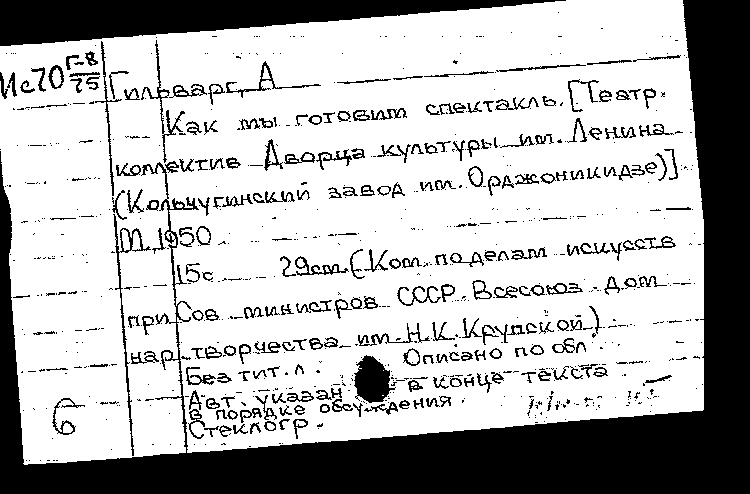 Ис70 Г-8/75 Гильварг, А
Как мы готовим спектакль. [Театр.
коллектив Дворца культуры им. Ленина
(Кольчугинский завод им. Орджоникидзе)]
М. 1950
15с 29cm. (Ком. по делам искусств
при Сов. министров СССР. Всесоюз. дом
нар. творчества им. Н.К. Крупской)
Без тит. л. Описано по обл.
Авт. указан в конце текста
В порядке обсуждения.
Стеклогр.
6